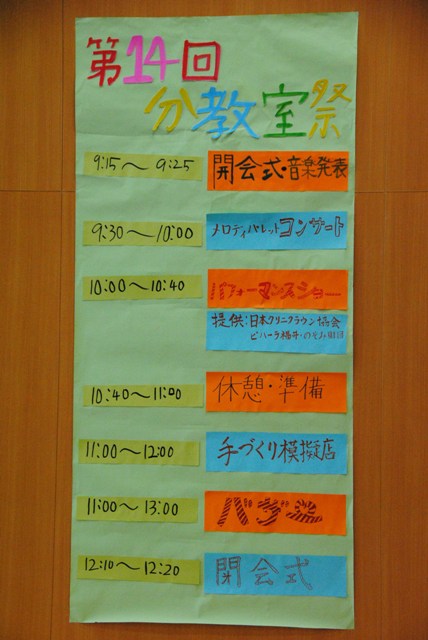 第14回
分教室祭
9:15～9:25 開会式・音楽発表
9:30～10:00 メロディパレットコンサート
10:00～10:40 パフォーマンスショー
提供：日本クリニクラウン協会
ビハーラ福井・のぞみ財団
10:40～11:00 休憩・準備
11:00～12:00 手づくり模擬店
11:00～13:00 バザー
12:10～12:20 閉会式